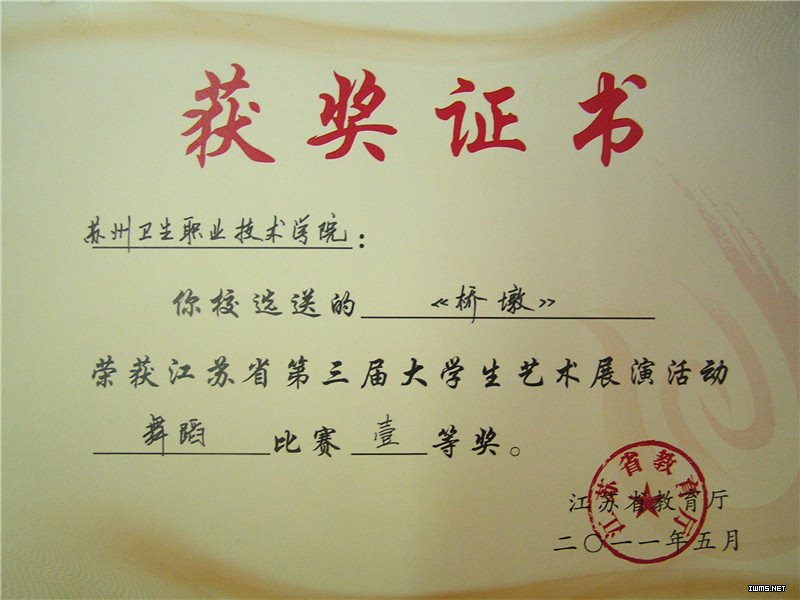 获奖证书
苏州卫生职业技术学院：
你校选送的《桥墩》
荣获江苏省第三届大学生艺术展演活动
舞蹈比赛壹等奖。
江苏省教育厅
江苏省教育厅
二〇一一年五月
IWMS.NET